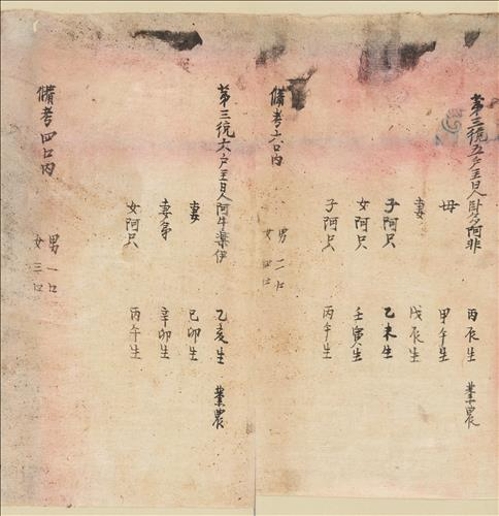 第三統五戶主日人財多阿非 丙辰生 業農
母 甲午生
妻 戊辰生
子阿只 乙未生
女阿只 壬寅生
子阿只 丙午生
備考六口內 男二口
女四口
第三統六戶主日人阿牛業伊 乙亥生 業農
妻 己卯生
妻弟 辛卯生
女阿只 丙午生
備考四口內 男一口
女三口